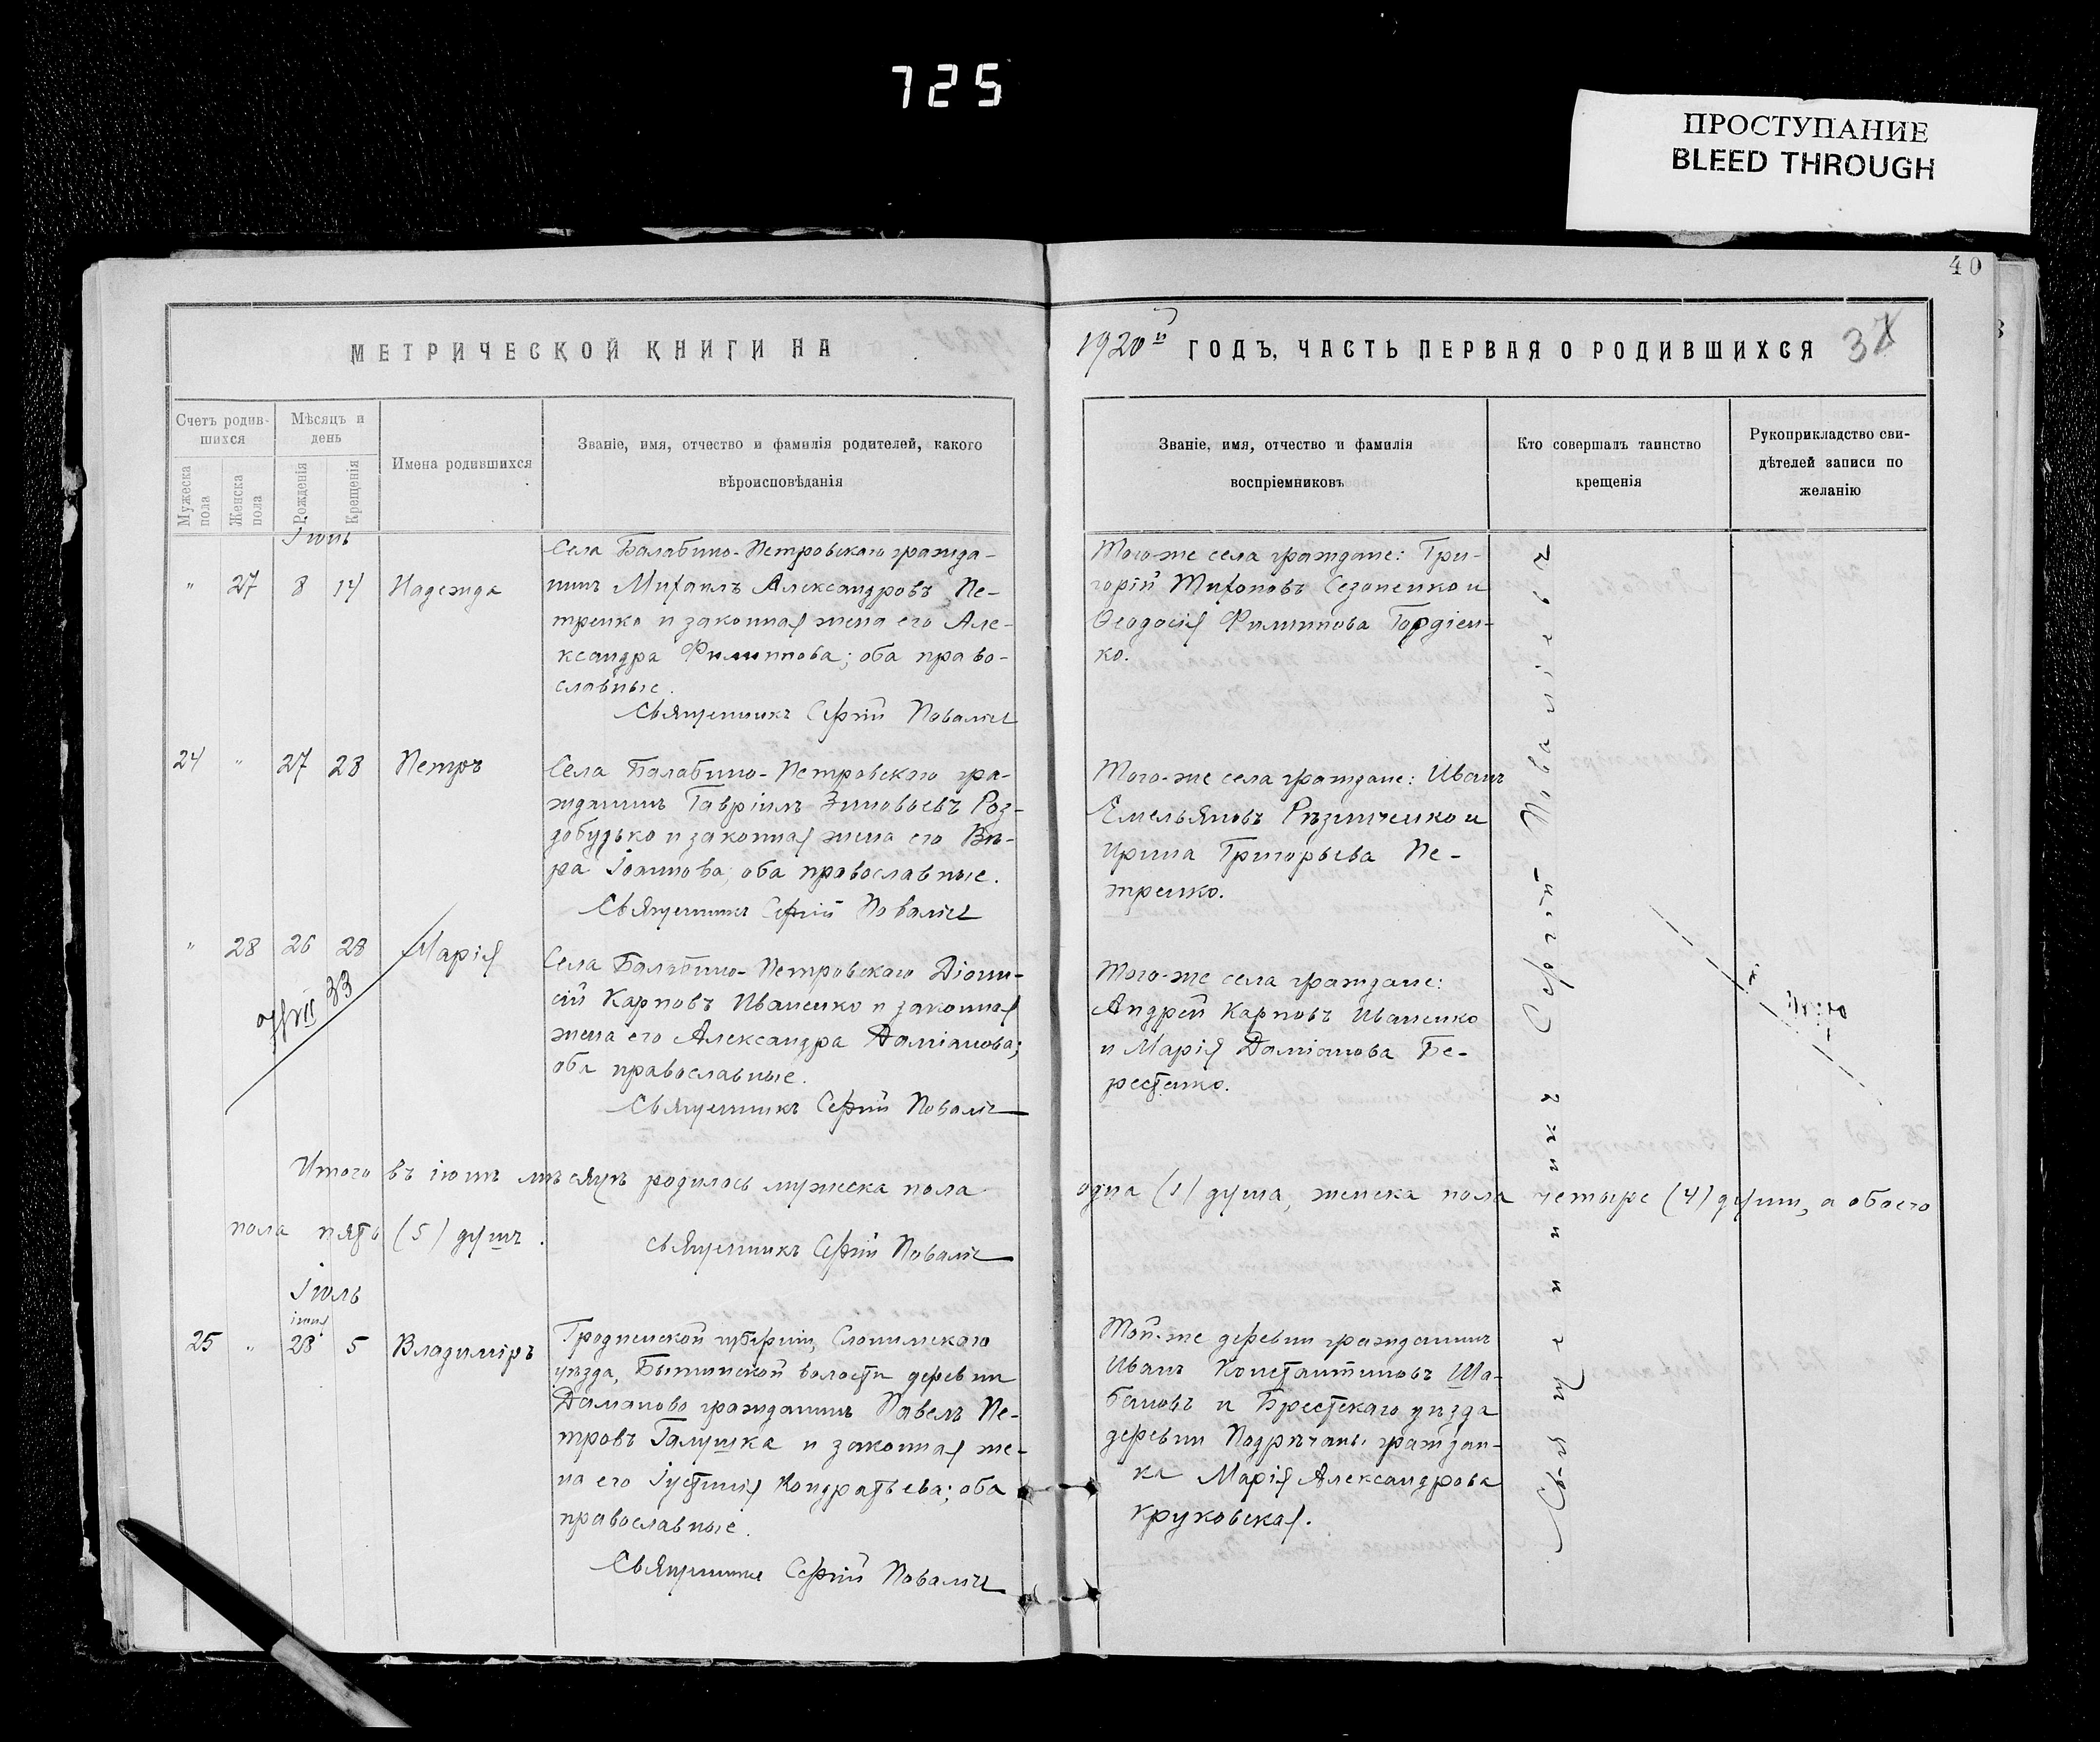 725
ПРОСТУПАНИЕ
BLEED THROUGH
40
МЕТРИЧЕСКОЙ КНИГИ НА
1920й ГОДЪ, ЧАСТЬ ПЕРВАЯ О РОДИВШИХСЯ
37
Счетъ родив-
шихся
Мужеска
пола
Женска
пола
Мѣсяцъ и
день
Рожденія
Крещенія
Имена родившихся
Званіе, имя, отчество и фамилія родителей, какого
вѣроисповѣданія
Званіе, имя, отчество и фамилія
воспріемниковъ
Кто совершалъ таинство
крещенія
Рукоприкладство сви-
дѣтелей записи по
желанію
Іюнь
" 27 8 14 Надежда
Села Балабино-Петровскаго гражда-
нинъ Михаилъ Александровъ Пе-
тренко и законная жена его Але-
ксандра Филиппова; оба право-
славные.
Священникъ Сергій Поваліи
Того-же села граждане: Гри-
горій Тихоновъ Сезоненко и
Ѳеодосія Филиппова Гордіен-
ко.
24 " 27 28 Петръ
Села Балабино-Петровскаго гра-
жданинъ Гавріилъ Зиновьевъ Роз-
добудько и законная жена его Вѣ-
ра Іоаннова; оба православные.
Священникъ Сергій Поваліи
Того-же села граждане: Иванъ
Емельяновъ Рѣзниченко и
Ирина Григорьева Пе-
тренко.
" 28 26 28 Марія
Села Балабино-Петровскаго Діони-
сій Карповъ Иваненко и законная
жена его Александра Даміанова;
оба православные.
Священникъ Сергій Поваліи
Того-же села граждане:
Андрей Карповъ Иваненко
и Марія Даміанова Бе-
рестенко.
33
Итого въ іюнѣ мѣсяцѣ родилось мужеска пола одна (1) душа, женска пола четыре (4) души, а обоего
пола пять (5) душъ.
Священникъ Сергій Поваліи
Іюль
іюня
25 " 28 5 Владиміръ
Гродненской губерніи, Слонимскаго
уѣзда, Бытинской волости деревни
Даманово гражданинъ Павелъ Пе-
тровъ Галушка и законная же-
на его Іустинія Кондратьева; оба
православные.
Священникъ Сергій Поваліи
Той-же деревни гражданинъ
Иванъ Константиновъ Ша-
бановъ и Брестскаго уѣзда
деревни граждан-
ка Марія Александрова
Круковская.
Священникъ Сергій